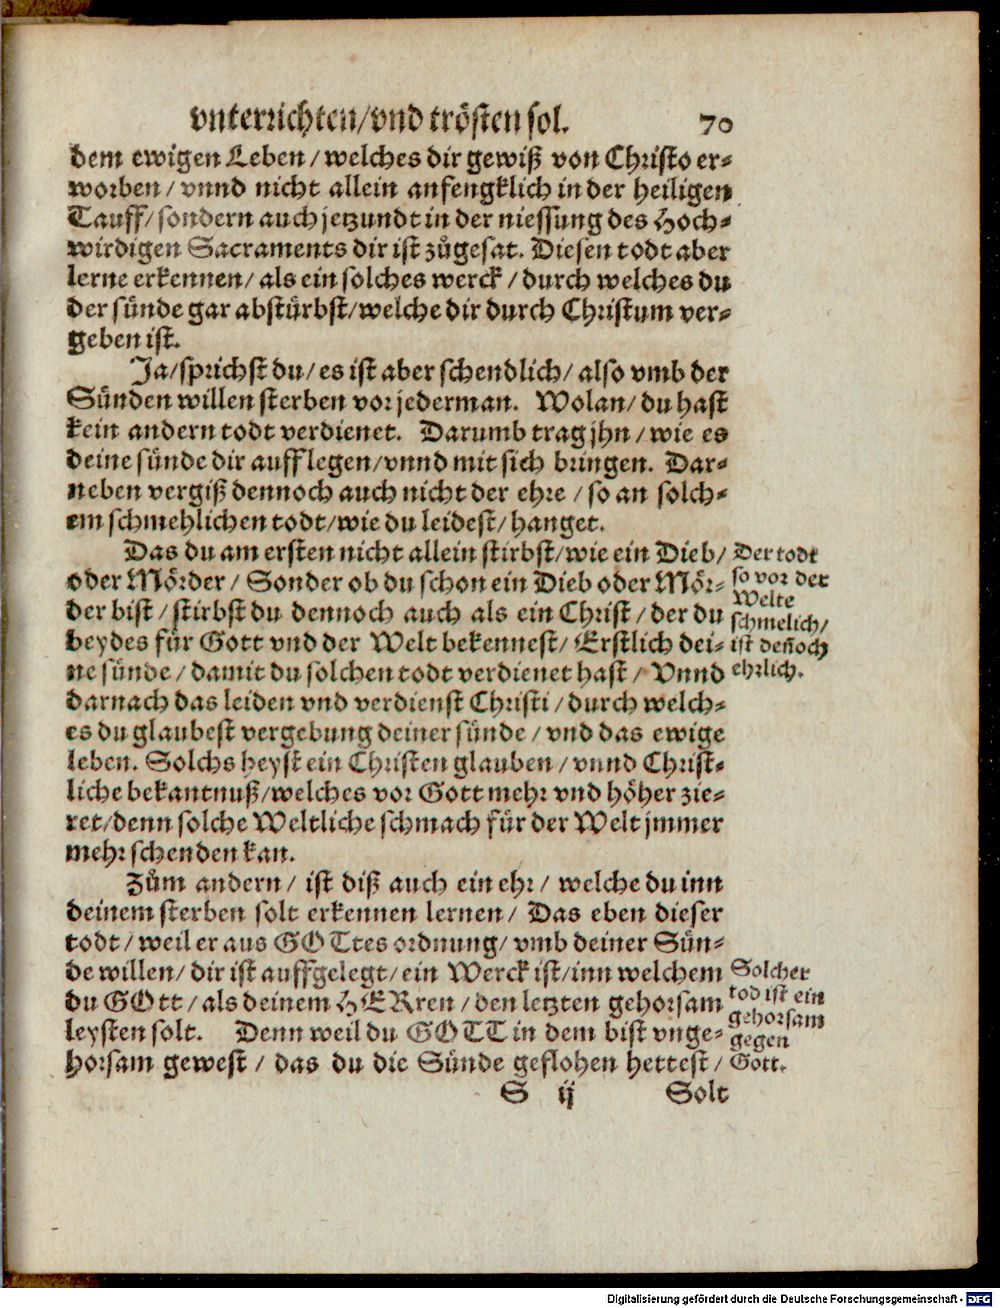 vnterrichten/vnd trösten sol. 70
dem ewigen Leben/welches dir gewiß von Christo er-
worben/vnnd nicht allein anfengklich in der heiligen
Tauff/sondern auch jetzundt in der niessung des Hoch-
wirdigen Sacraments dir ist zůgesat. Diesen todt aber
lerne erkennen/als ein solches werck/durch welches du
der sünde gar abstürbst/welche dir durch Christum ver-
geben ist.
Ja/sprichst du/es ist aber schendlich/also vmb der
Sünden willen sterben vor jederman. Wolan/du hast
kein andern todt verdienet. Darumb trag jhn/wie es
deine sünde dir auff legen/vnnd mit sich bringen. Dar-
neben vergiß dennoch auch nicht der ehre/so an solch-
em schmehlichen todt/wie du leidest/hanget.
Das du am ersten nicht allein stirbst/wie ein Dieb/
oder Mörder/Sonder ob du schon ein Dieb oder Mör-
der bist/stirbst du dennoch auch als ein Christ/der du
beydes für Gott vnd der Welt bekennest/Erstlich dei-
ne sünde/damit du solchen todt verdienet hast/Vnnd
darnach das leiden vnd verdienst Christi/durch welch-
es du glaubest vergebung deiner sünde/vnd das ewige
leben. Solchs heyst ein Christen glauben/vnnd Christ-
liche bekantnuß/welches vor Gott mehr vnd höher zie-
ret/denn solche Weltliche schmach für der Welt jmmer
mehr schenden kan.
Der todt
so vor der
Welte
schmelich/
ist deñoch
ehrlich.
Zům andern/ist diß auch ein ehr/welche du inn
deinem sterben solt erkennen lernen/Das eben dieser
todt/weil er aus GOTtes ordnung/vmb deiner Sün-
de willen/dir ist auffgelegt/ein Werck ist/inn welchem
du GOtt/als deinem HERren/den letzten gehorsam
leysten solt. Denn weil du GOTT in dem bist vnge-
horsam gewest/das du die Sünde geflohen hettest/
Solcher
tod ist ein
gehorsam
gegen
Gott.
S ij Solt
Digitalisierung gefördert durch die Deutsche Forschungsgemeinschaft - DFG